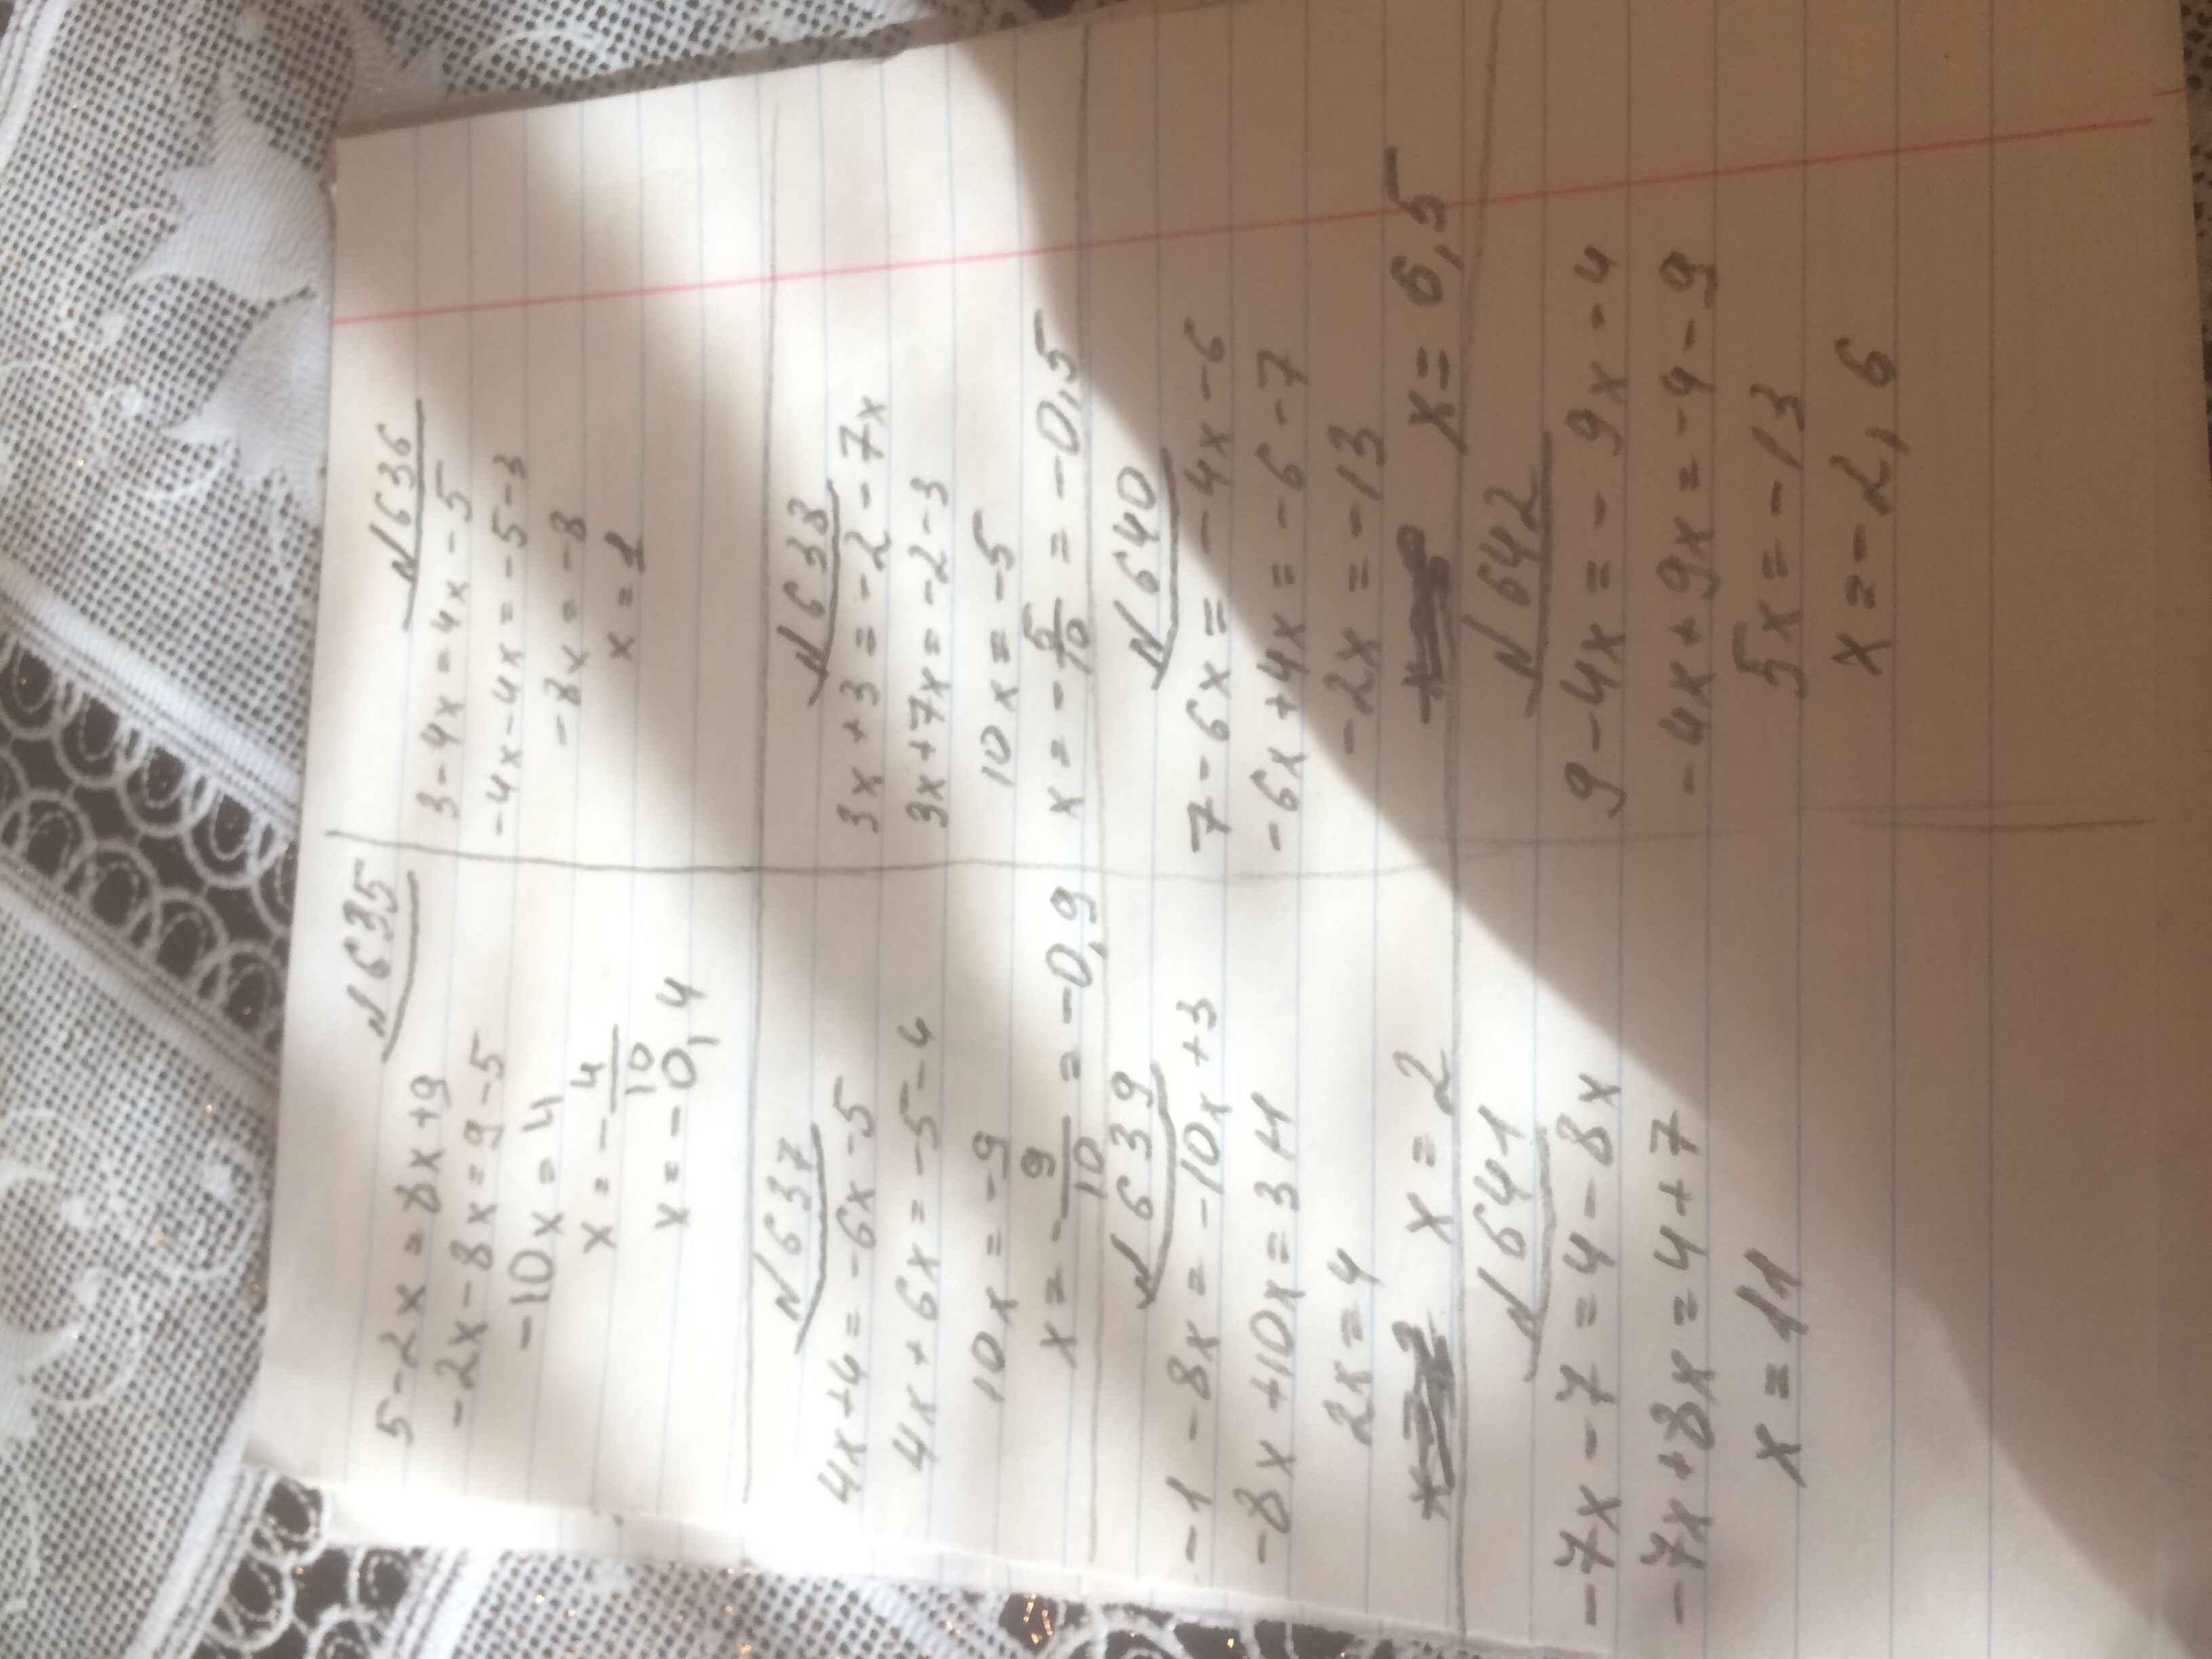 N635
5-2x=8x+9
-2x-8x=9-5
-10x=4
x=-4/10
x=-0,4
N636
3-4x=4x-5
-4x-4x=-5-3
-8x=-8
x=1
N637
4x+4=-6x-5
4x+6x=-5-4
10x=-9
x=-9/10=-0,9
N638
3x+3=-2-7x
3x+7x=-2-3
10x=-5
x=-5/10=-0,5
N639
-1-8x=-10x+3
-8x+10x=3+1
2x=4
x=2
N640
7-6x=-4x-6
-6x+4x=-6-7
-2x=-13
x=6,5
N641
-7x-7=4-8x
-7x+8x=4+7
x=11
N642
9-4x=-9x-4
-4x+9x=-4-9
5x=-13
x=-2,6